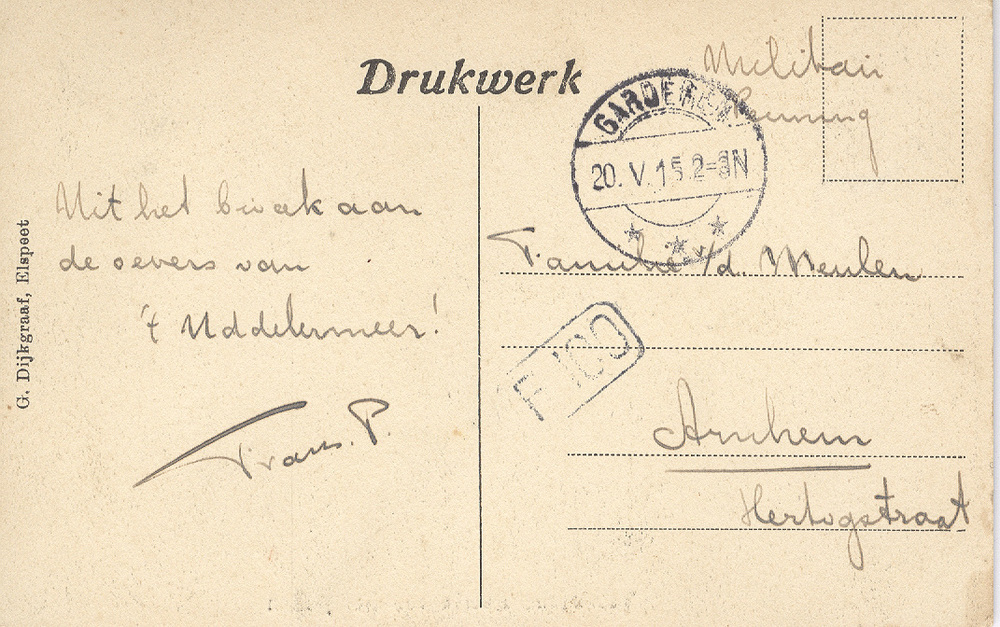 Drukwerk
Militair
GARDEREN
20. V. 15. 2-3N
Uit het bivak aan
de oevers van
't Uddelermeer!
Frans. P.
Familie v/d. Meulen
Arnhem
Hertogstraat
G. Dijkgraaf, Elspeet